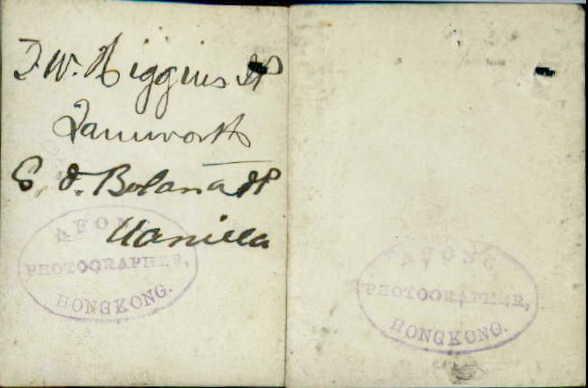 F. W. Higgins JP
Tamworth
E. J. Boland JP
Manilla
AFONG
PHOTOGRAPHER,
HONGKONG.
AFONG
PHOTOGRAPHER,
HONGKONG.